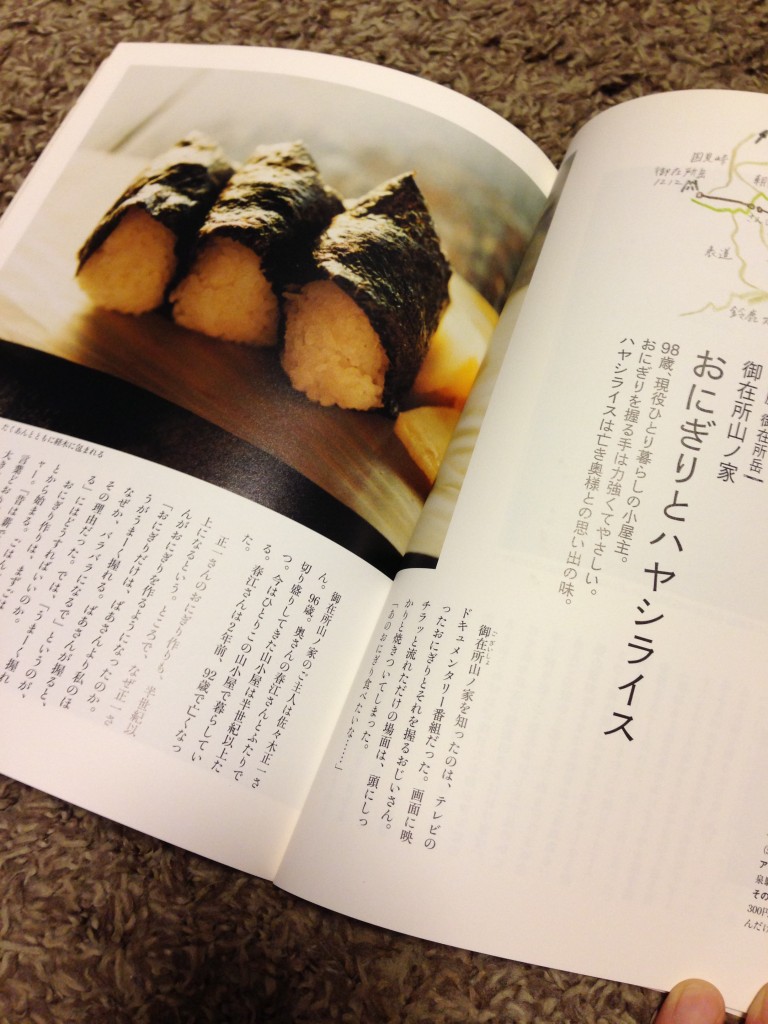 国見峠
御在所岳
1212
表道
鈴鹿
御在所岳
御在所山ノ家
おにぎりとハヤシライス
98歳、現役ひとり暮らしの小屋主。
おにぎりを握る手は力強くてやさしい。
ハヤシライスは亡き奥様との思い出の味。
御在所山ノ家を知ったのは、テレビの
ドキュメンタリー番組だった。画面に映
ったおにぎりとそれを握るおじいさん。
チラッと流れただけの場面は、頭にしっ
かりと焼きついてしまった。
「あのおにぎり食べたいな……」
たくあんとともに経木に包まれる
御在所山ノ家のご主人は佐々木正一さ
ん。96歳。奥さんの春江さんとふたりで
切り盛りしてきた山小屋は半世紀以上た
つ。今はひとりこの山小屋で暮らしてい
る。春江さんは2年前、92歳で亡くなっ
た。
正一さんのおにぎり作りも、半世紀以
上になるという。ところで、なぜ正一さ
んがおにぎりを作るようになったのか。
「おにぎりだけは、ばあさんより私のほ
うがうまーく握れる。ばあさんが握ると、
なぜか、バラバラになるで」というのが、
その理由だった。では、「うまーく握れ
る」にはどうすればいいのか。
おにぎり作りは、まずごは
とから始まる。
300円
んだけ